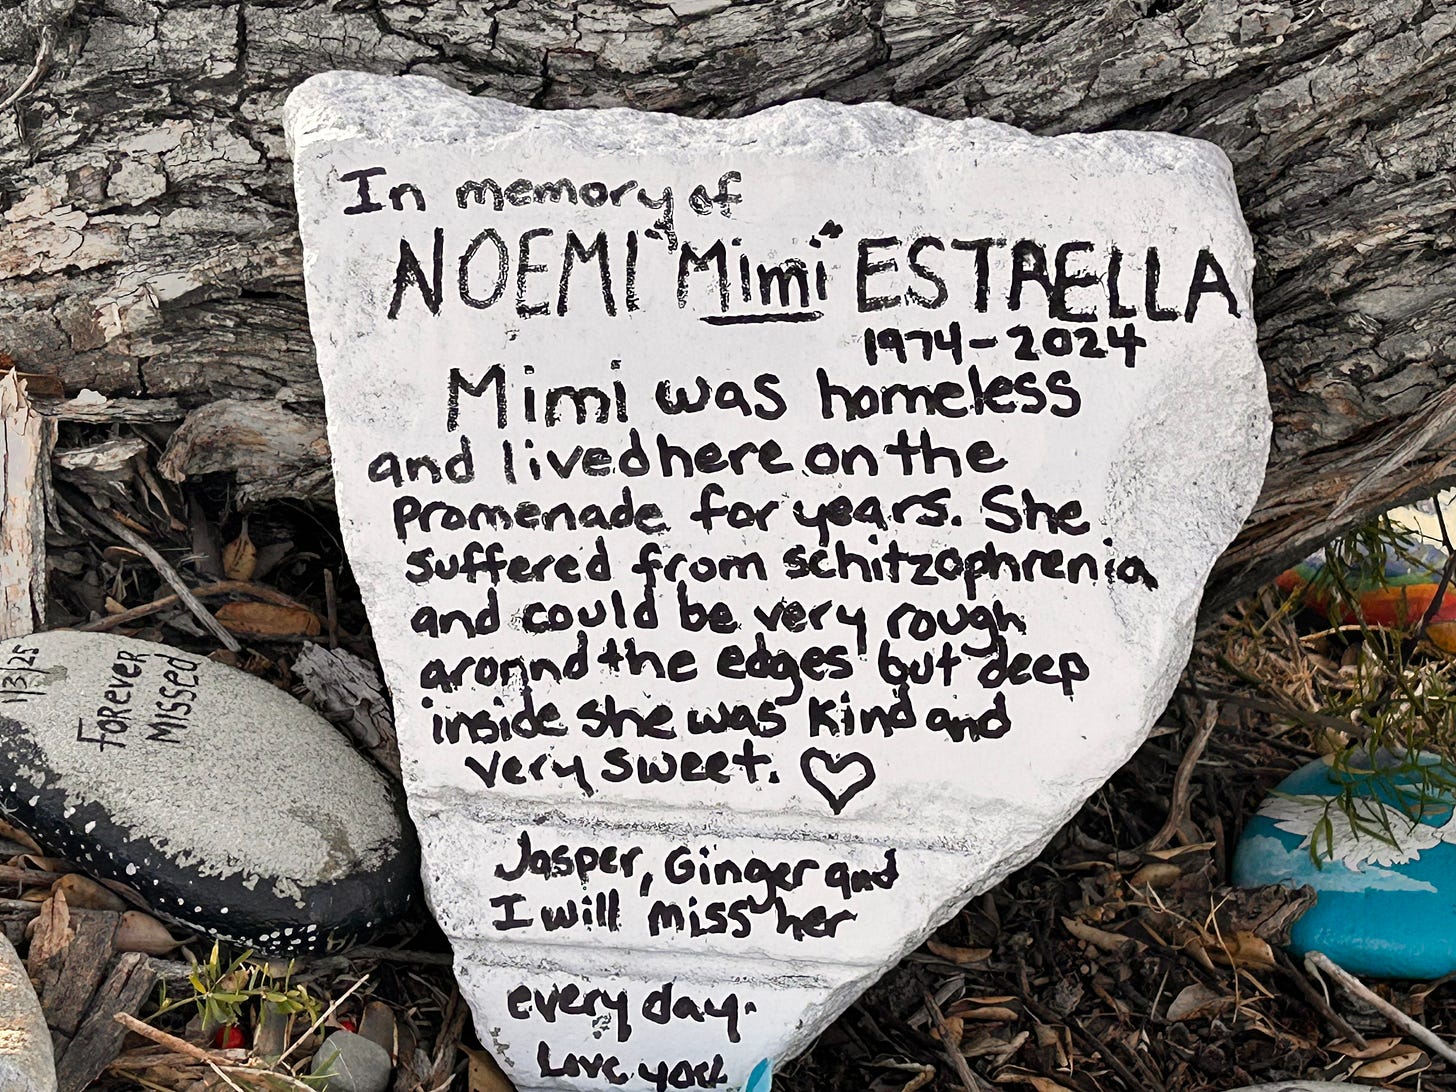 In memory of
NOEMI "Mimi" ESTRELLA
1974-2024
Mimi was homeless
and lived here on the
promenade for years. She
suffered from schitzophrenia
and could be very rough
around the edges but deep
inside she was kind and
very sweet. ♡
Jasper, Ginger and
I will miss her
every day.
Love you
1/3/25
Forever
Missed